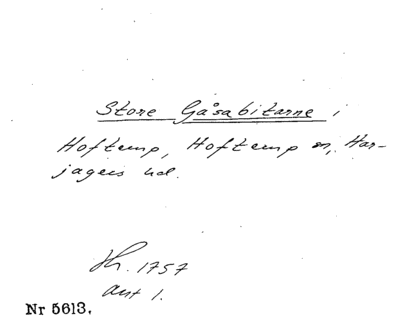 Store Gåsabitarne i
Hofterup, Hofterup sn, Har-
jagers hd.
Hr. 1757
akt 1.
Nr 5613.